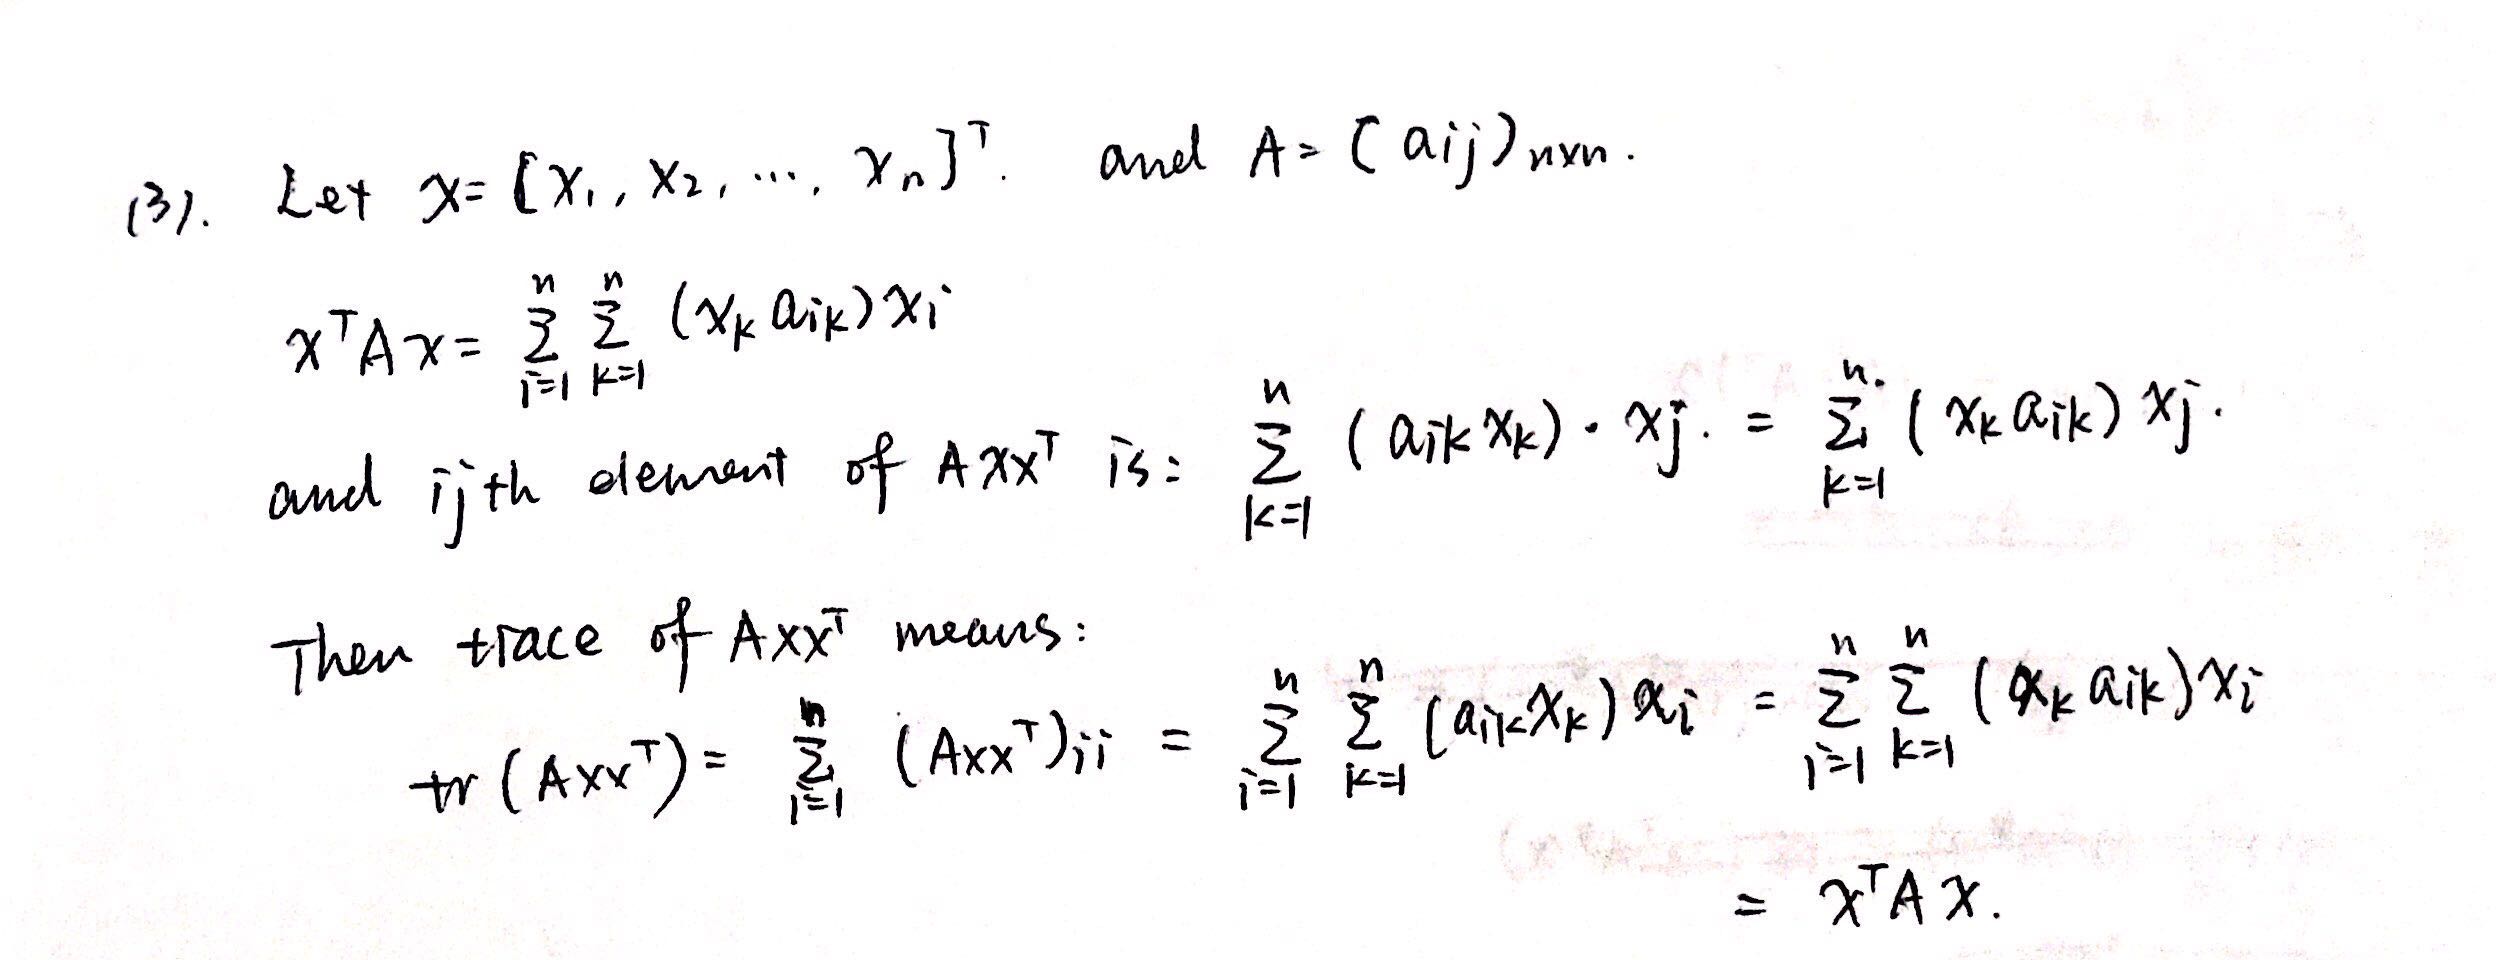 (3). Let x = [x₁, x₂, ..., xₙ]ᵀ. and A = (aij)n×n.
xᵀAx = ∑_{i=1}^{n} ∑_{k=1}^{n} (xₖ aik) xi
and ijth element of Axxᵀ is: ∑_{k=1}^{n} (aik xk) · xj. = ∑_{k=1}^{n} (xk aik) xj.
Then trace of Axxᵀ means:
tr(Axxᵀ) = ∑_{i=1}^{n} (Axxᵀ)ii = ∑_{i=1}^{n} ∑_{k=1}^{n} (aik xk) xi = ∑_{i=1}^{n} ∑_{k=1}^{n} (xk aik) xi
= xᵀAx.